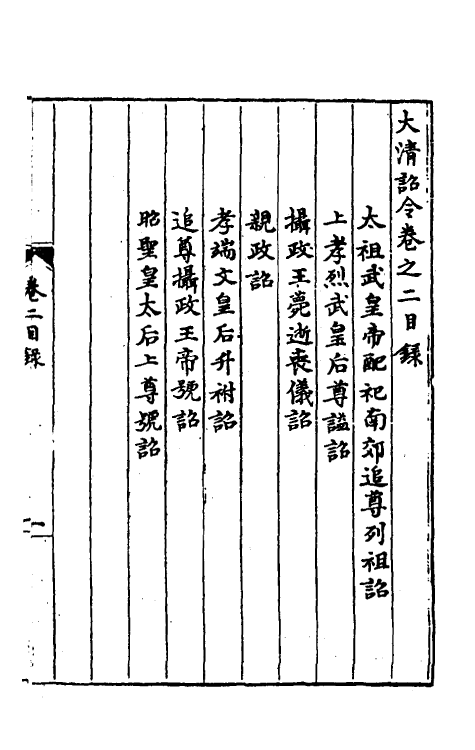 大清詔令卷之二目錄
太祖武皇帝配祀南郊追尊列祖詔
上孝烈武皇后尊謚詔
攝政王薨逝喪儀詔
親政詔
孝端文皇后升祔詔
追尊攝政王帝號詔
昭聖皇太后上尊號詔
卷二目錄
一